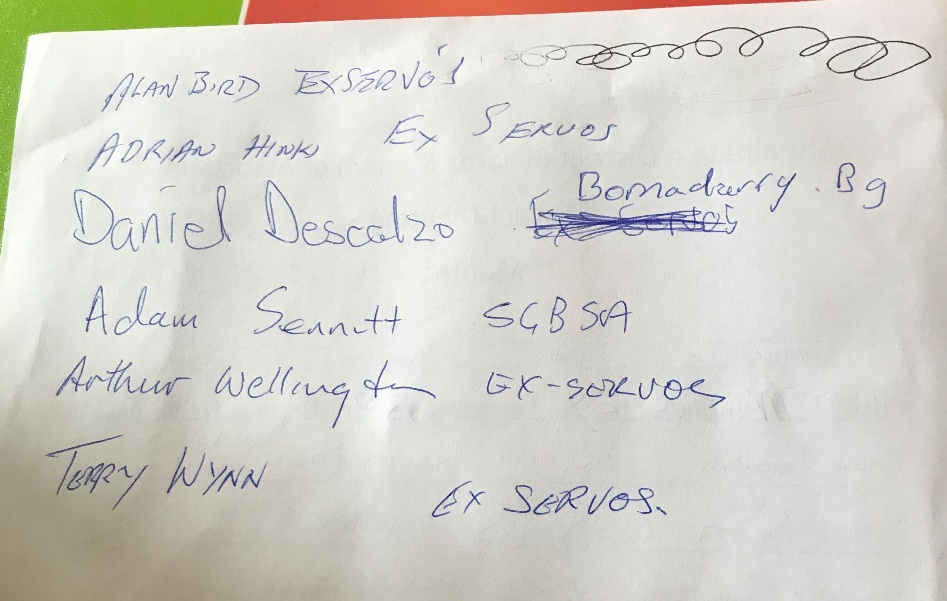 ALAN BIRD EXSERVO'S
ADRIAN HINKS EX SERVOS
Daniel Descalzo Bomaderry. Bg
Adam Sennett SGBSA
Arthur Wellington EX-SERVOS
TERRY WYNN EX SERVOS.